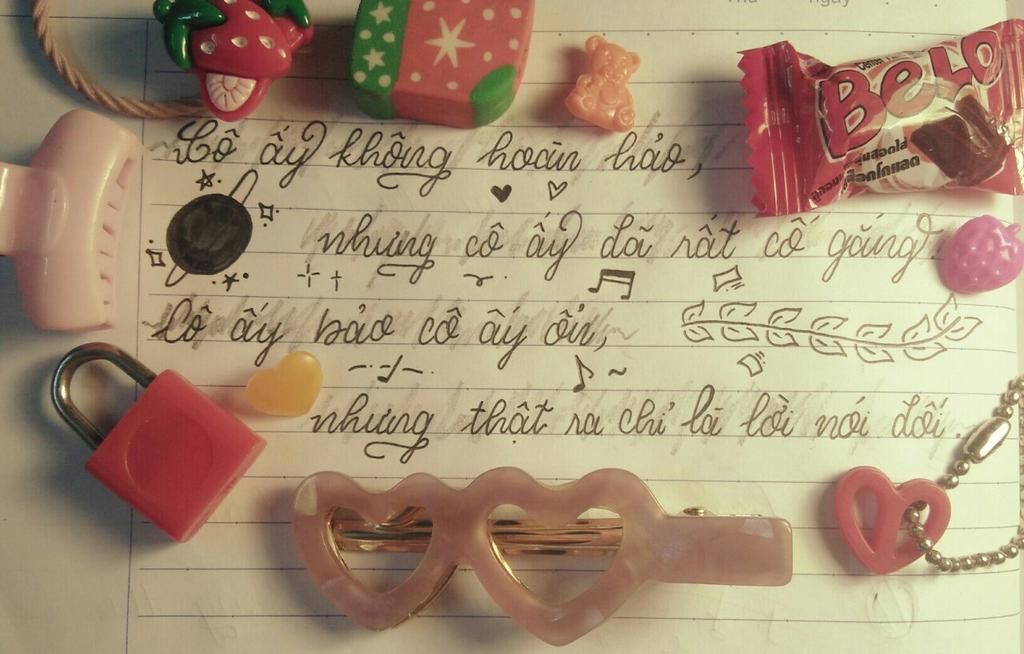 Thứ ngày
BELO
Cô ấy không hoàn hảo,
nhưng cô ấy đã rất cố gắng.
Cô ấy bảo cô ấy ổn,
nhưng thật ra chỉ là lời nói dối.